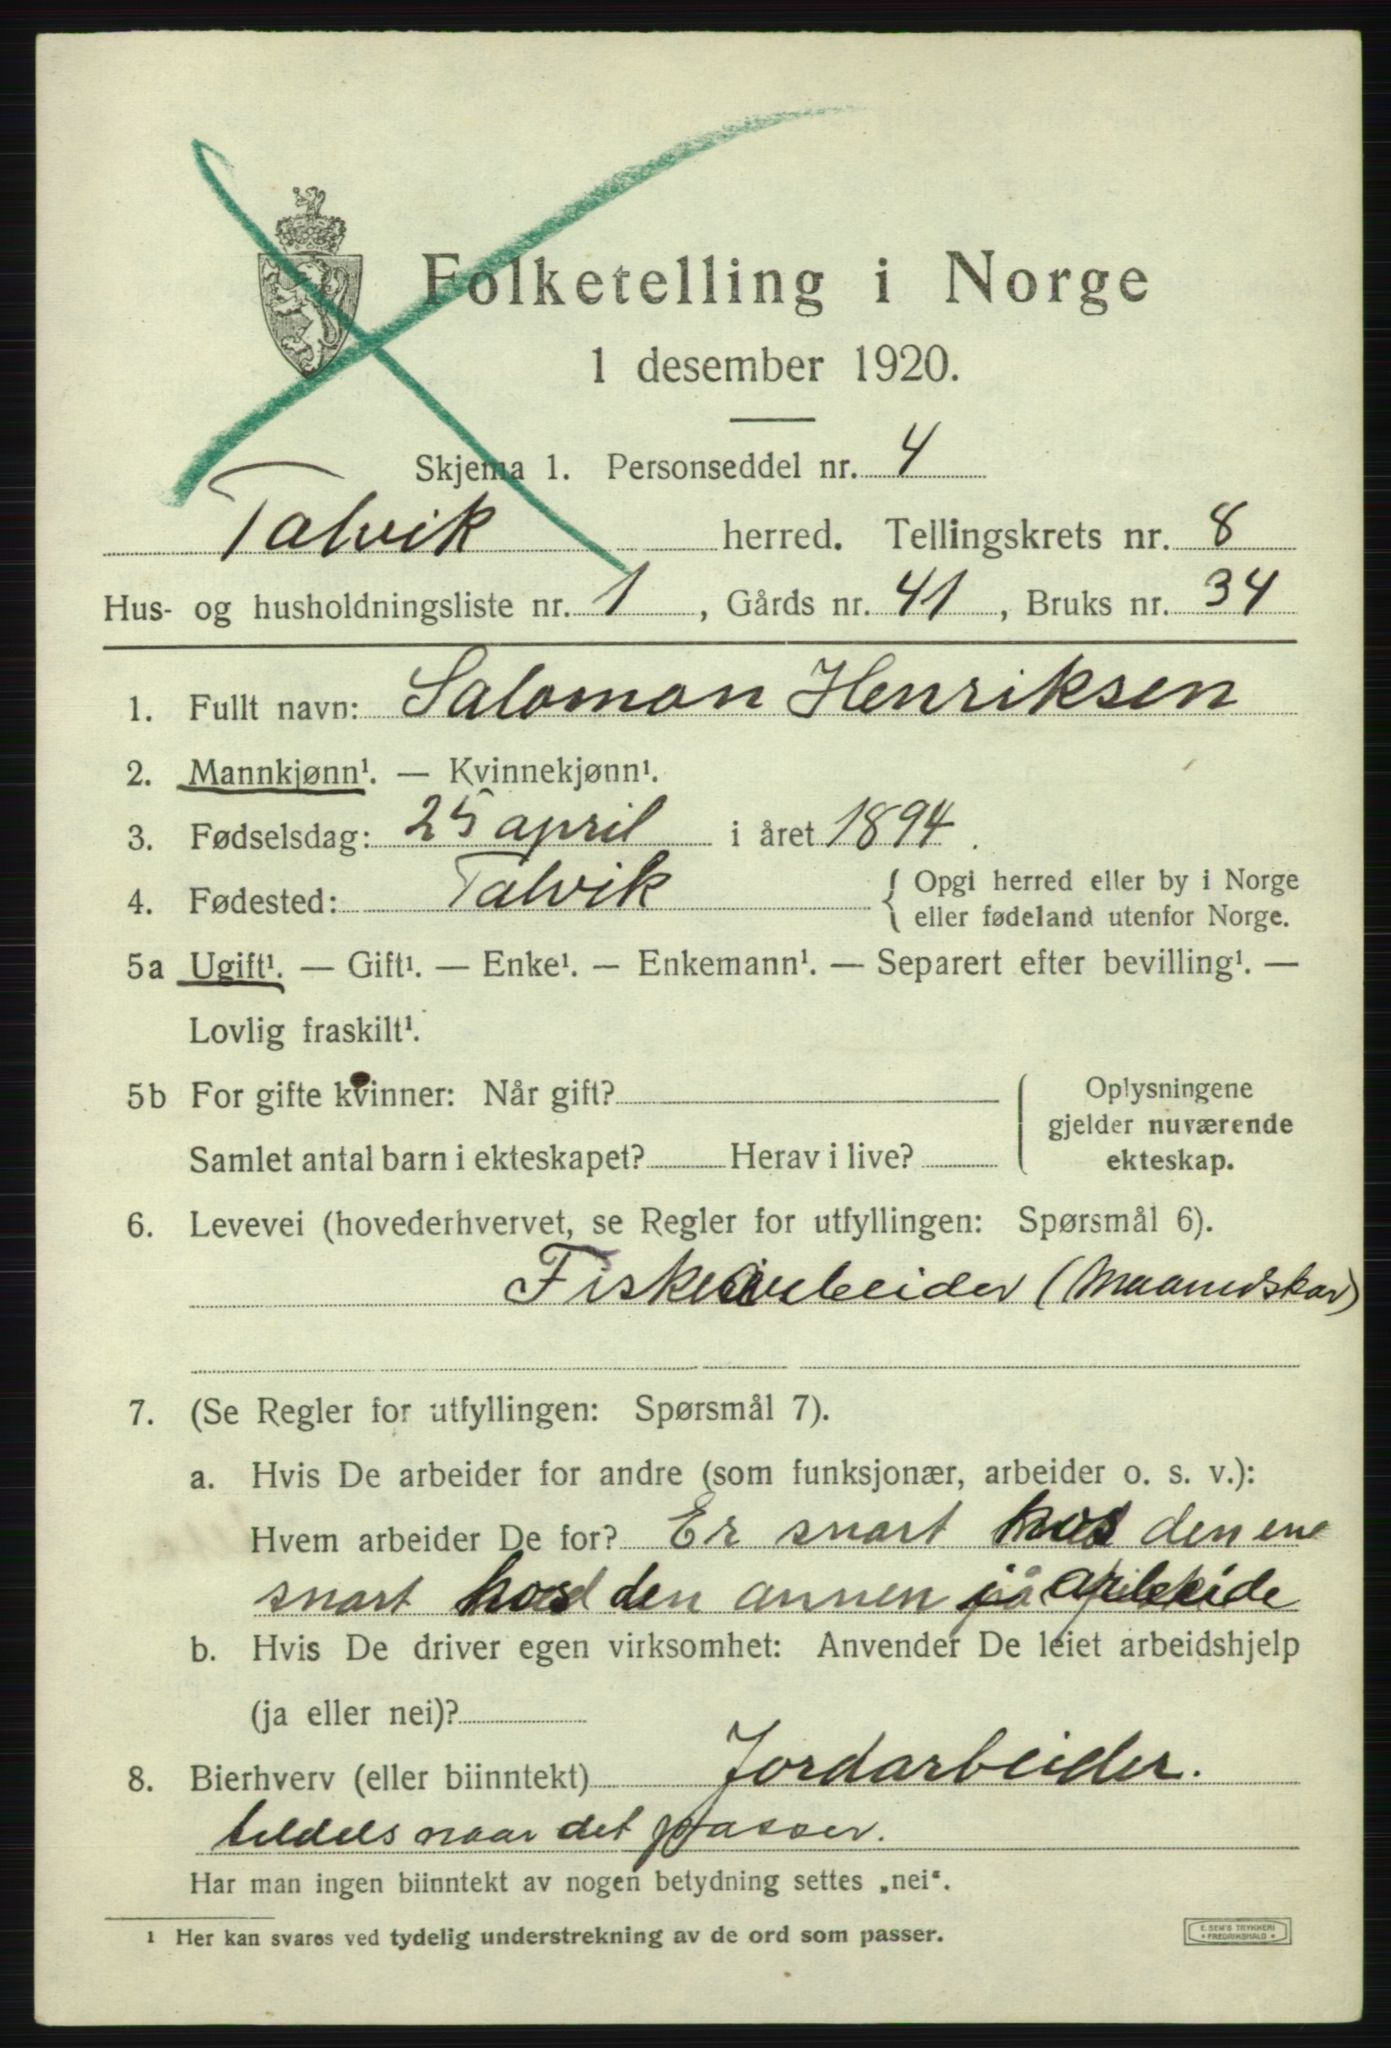 Folketelling i Norge
1 desember 1920.
Skjema 1. Personseddel nr. 4
Talvik herred. Tellingskrets nr. 8
Hus- og husholdningsliste nr. 1, Gårds nr. 41, Bruks nr. 34
1. Fullt navn: Salomon Henriksen
2. Mannkjønn¹. — Kvinnekjønn¹.
3. Fødselsdag: 25 april i året 1894.
4. Fødested: Talvik { Opgi herred eller by i Norge
eller fødeland utenfor Norge.
5a Ugift¹. — Gift¹. — Enke¹. — Enkemann¹. — Separert efter bevilling¹. —
Lovlig fraskilt¹.
5b For gifte kvinner: Når gift?
Samlet antal barn i ekteskapet? Herav i live?
Oplysningene
gjelder nuværende
ekteskap.
6. Levevei (hovederhvervet, se Regler for utfyllingen: Spørsmål 6).
Fiskearbeider (Maanedskar)
7. (Se Regler for utfyllingen: Spørsmål 7).
a. Hvis De arbeider for andre (som funksjonær, arbeider o. s. v.):
Hvem arbeider De for? Er snart hos den ene
snart hos den annen på arbeide
b. Hvis De driver egen virksomhet: Anvender De leiet arbeidshjelp
(ja eller nei)?
8. Bierhverv (eller biinntekt) Jordarbeider.
teldels naar det passer.
Har man ingen biinntekt av nogen betydning settes „nei“.
1 Her kan svares ved tydelig understrekning av de ord som passer.
E. SEM'S TRYKKERI
FREDRIKSHALD